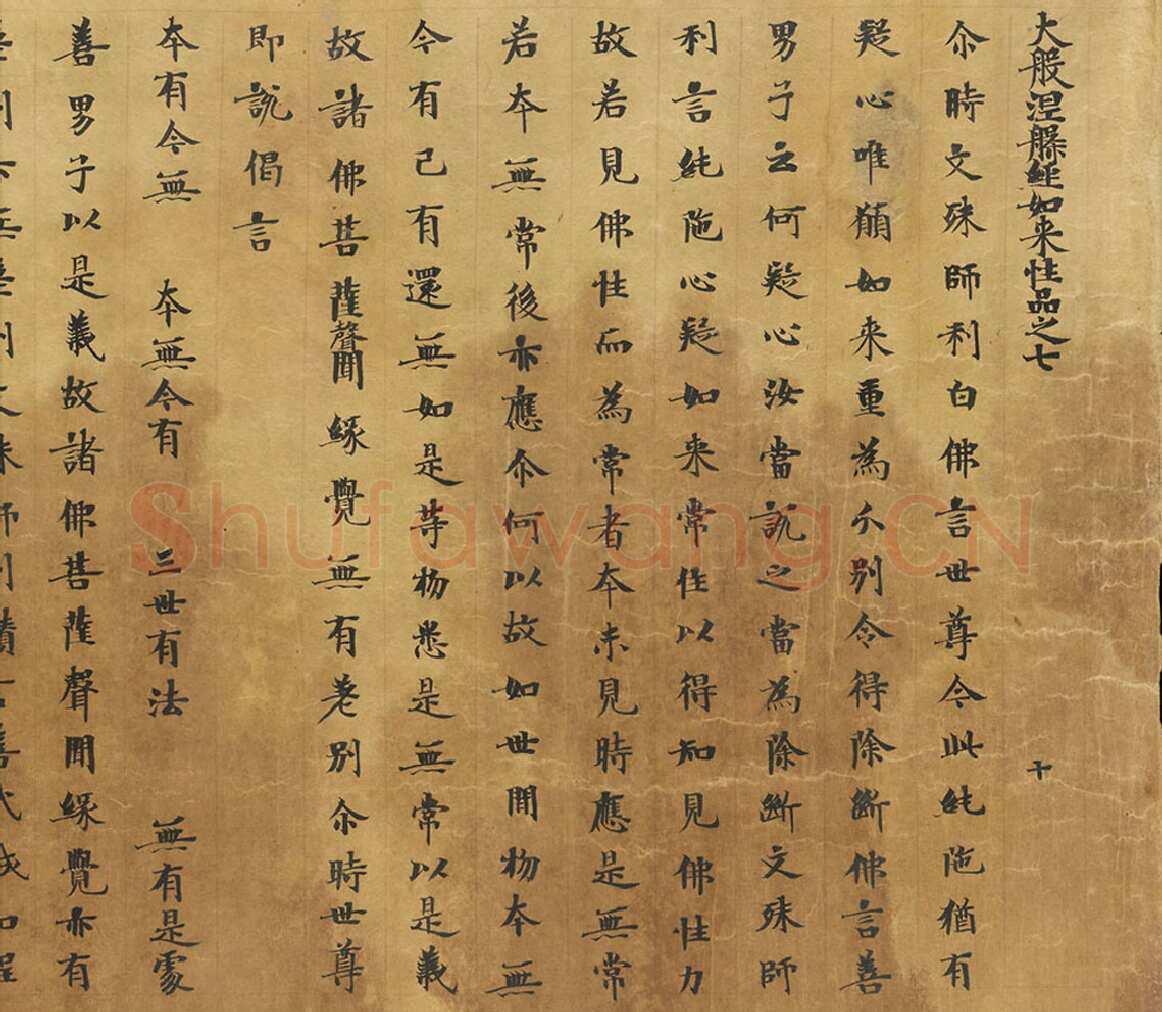 大般涅槃經如来性品之七 十
尒時文殊師利白佛言世尊今此純陁猶有
疑心唯願如来重為分別令得除斷佛言善
男子云何疑心汝當說之當為除斷文殊師
利言純陁心疑如来常住以得知見佛性力
故若見佛性而為常者本未見時應是無常
若本無常後亦應尒何以故如世間物本無
今有已有還無如是等物悉是無常以是義
故諸佛菩薩聲聞緣覺無有差別尒時世尊
即說偈言
本有今無 本無今有 三世有法 無有是處
善男子以是義故諸佛菩薩聲聞緣覺亦有
Shufawang.CN